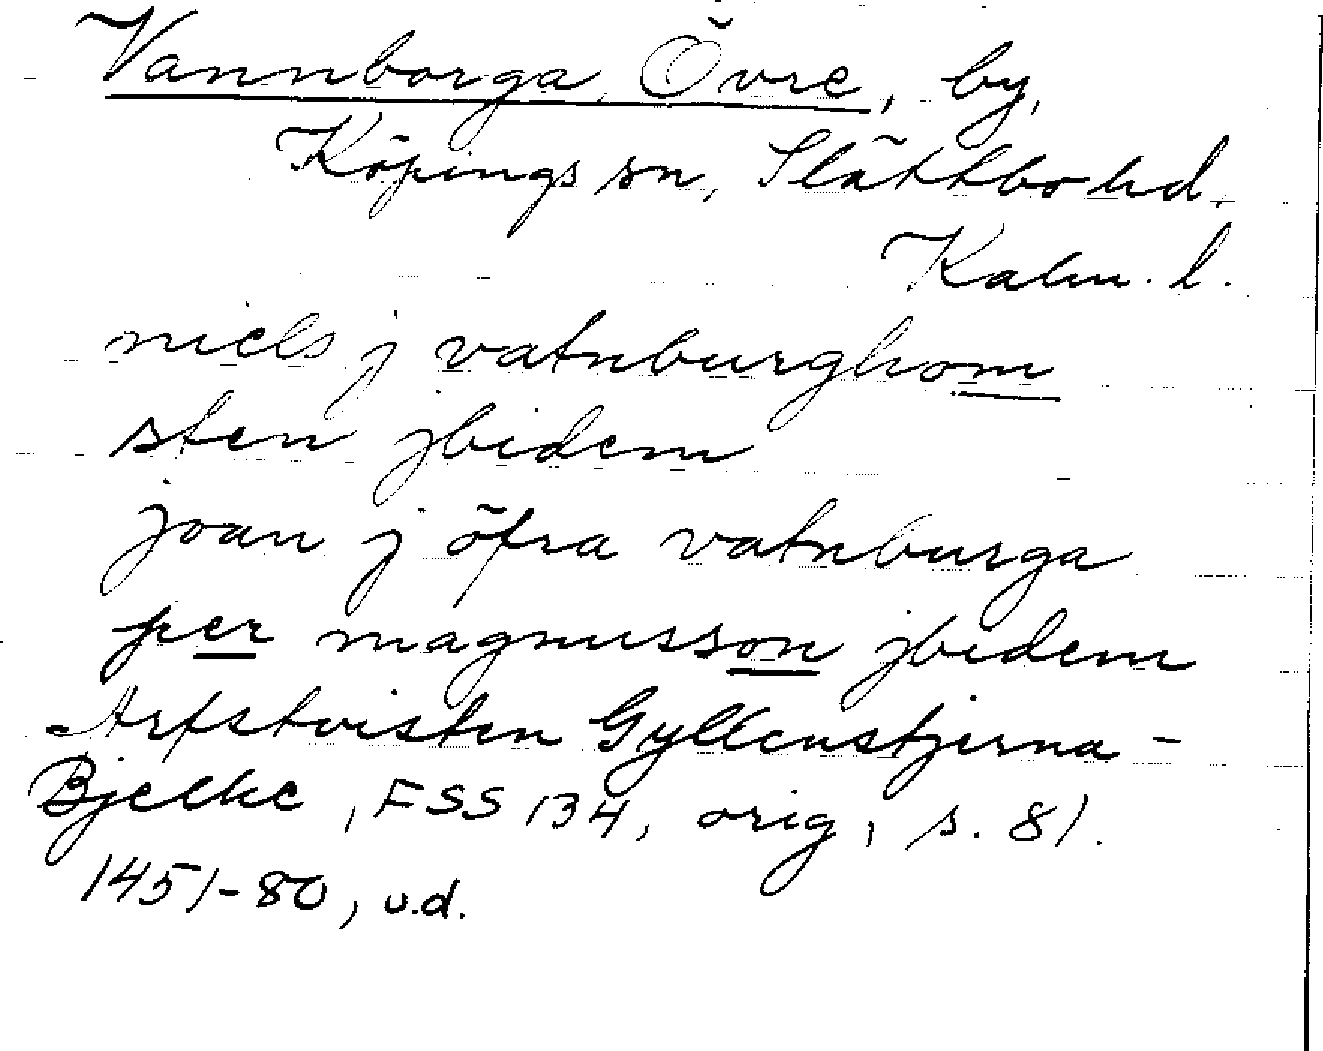 Vannborga, Övre, by,
Köpings sn, Slättbo hd.
Kalm. l.
niels j vatnburghom
sten jbidem
joan j öfra vatnburga
per magnusson jbidem
Arfstvisten Gyllenstjerna-
Bjelke, FSS 134, orig, s. 81.
1451-80, u.d.